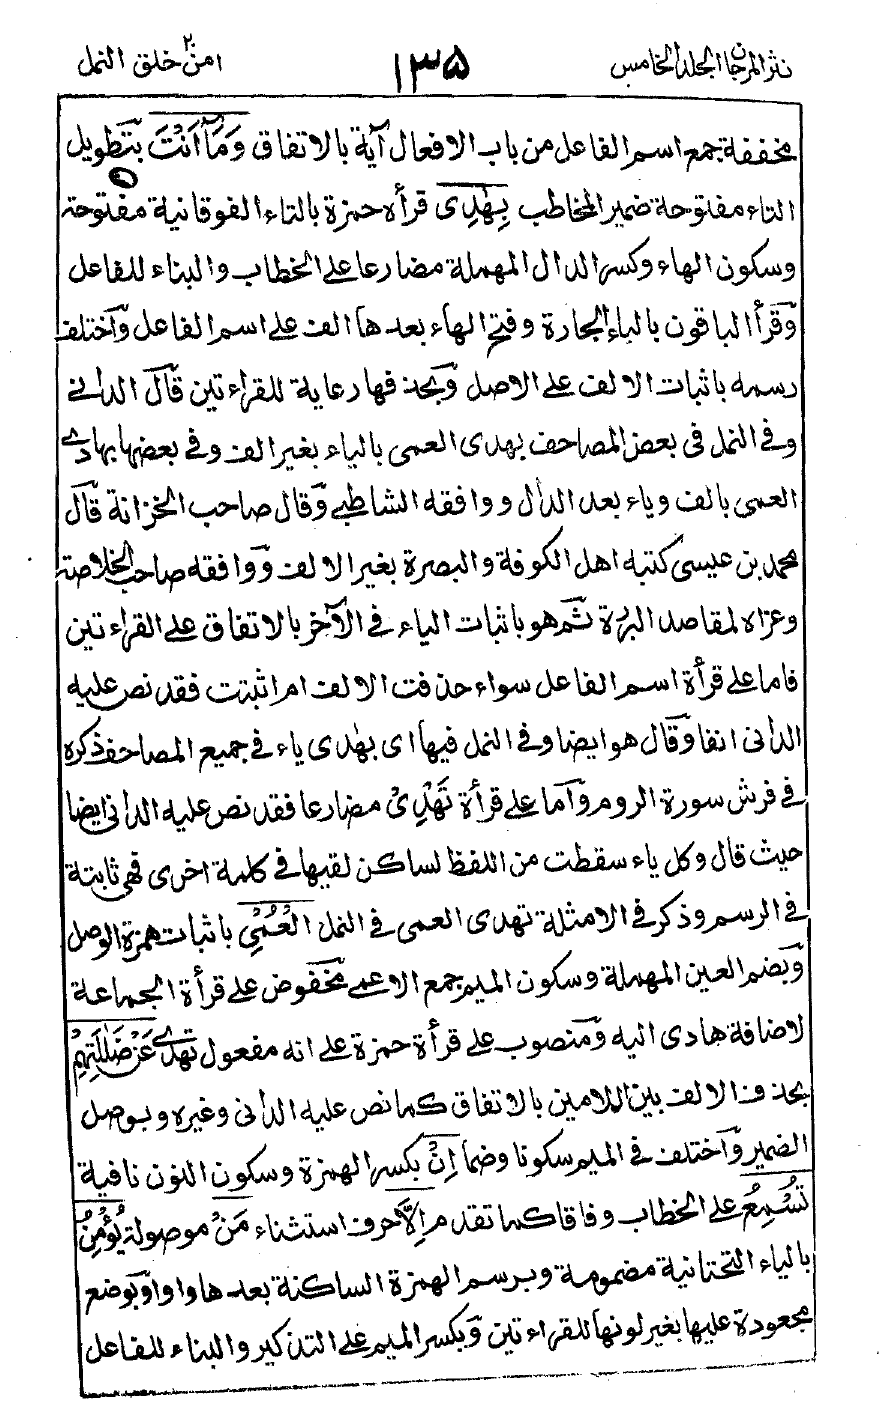 نثر المرجان الجلد الخامس
١٣٥
امن٢ خلق النمل
مخففة جمع اسم الفاعل من باب الافعال آية بالاتفاق وَمَآ اَنْتَ بتطويل
التاء مفتوحة ضمير المخاطب بِهٰدِى قرأه حمزة بالتاء الفوقانية مفتوحة
وسكون الهاء وكسر الدال المهملة مضارعا على الخطاب والبناء للفاعل
وقرأ الباقون بالباء الجارة وفتح الهاء بعدها الف على اسم الفاعل واختلف
رسمه باثبات الالف على الاصل وبحذفها رعاية للقراءتين قال الدانى
وفى النمل فى بعض المصاحف بهدى العمى بالياء بغير الف وفى بعضها بهادى
العمى بالف وياء بعد الدال ووافقه الشاطبى وقال صاحب الخزانة قال
محمد بن عيسى كتبه اهل الكوفة والبصرة بغير الالف ووافقه صاحب الخلاصة
وعزاه لمقاصد البررة ثم هو باثبات الياء فى الآخر بالاتفاق على القراءتين
فاما على قرأة اسم الفاعل سواء حذفت الالف ام اثبتت فقد نص عليه
الدانى انفا وقال هو ايضا وفى النمل فيها اى بهٰدى ياء فى جميع المصاحف ذكره
فى فرش سورة الروم واما على قرأة تَهْدِىْ مضارعا فقد نص عليه الدانى ايضا
حيث قال وكل ياء سقطت من اللفظ لساكن لقيها فى كلمة اخرى فهى ثابتة
فى الرسم وذكر فى الامثلة تهدى العمى فى النمل الْعُمْىِ باثبات همزة الوصل
وبضم العين المهملة وسكون الميم جمع الاعمى مخفوض على قرأة الجماعة
لاضافة هادى اليه ومنصوب على قرأة حمزة على انه مفعول تهدى عَنْ ضَلٰلَتِهِمْ
بحذف الالف بين اللامين بالاتفاق كما نص عليه الدانى وغيره وبوصل
الضمير واختلف فى الميم سكونا وضما اِنْ بكسر الهمزة وسكون النون نافية
تُسْمِعُ على الخطاب وفاقا كما تقدم اِلَّا حرف استثناء مَنْ موصولة يُؤْمِنُ
بالياء التحتانية مضمومة وبرسم الهمزة الساكنة بعدها واوا وبوضع
مجعودة عليها بغير لونها للقراءتين وبكسر الميم على التذكير والبناء للفاعل